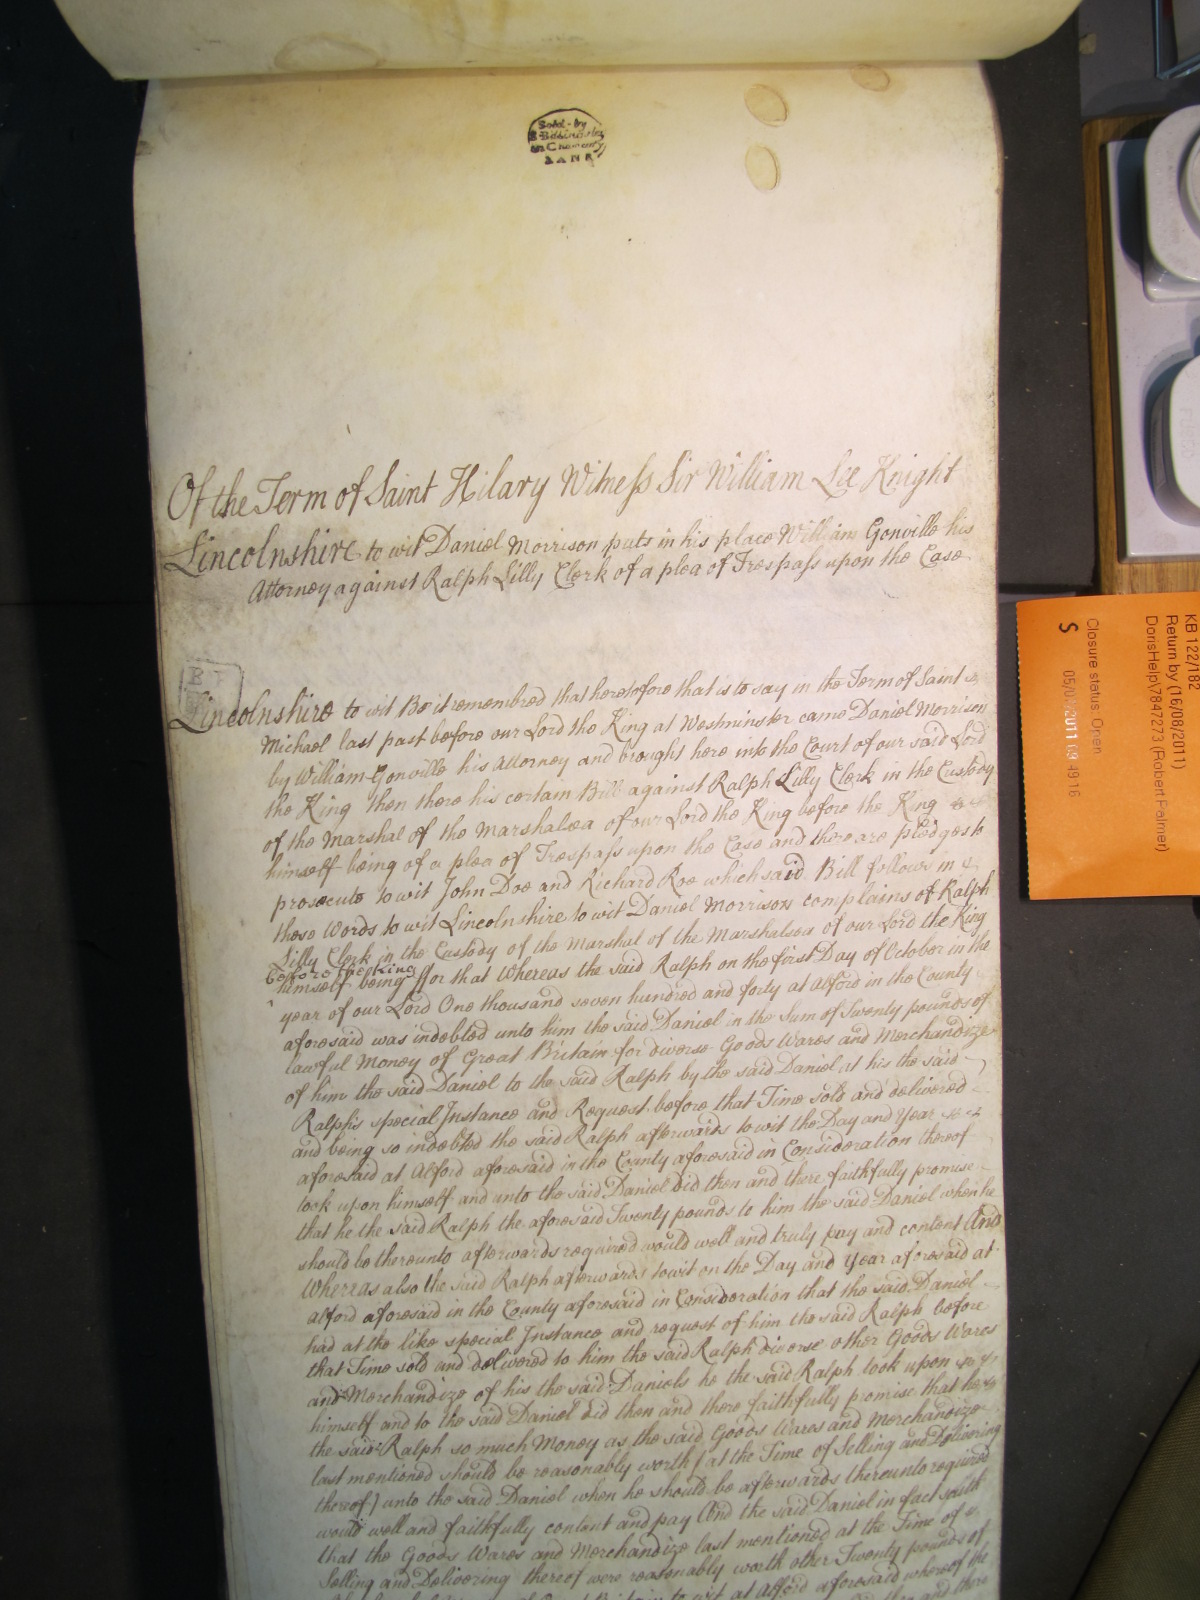 Sold by
Chancery
LANE
Of the Term of Saint Hilary Witness Sir William Lee Knight
Lincolnshire to wit Daniel Morrison puts in his place William Gonville his
Attorney against Ralph Lilly Clerk of a plea of Trespass upon the Case
Lincolnshire to wit Be it remembred that heretofore that is to say in the Term of Saint
Michael last past before our Lord the King at Westminster came Daniel Morrison
by William Gonville his Attorney and brought here into the Court of our said Lord
the King then there his certain Bill against Ralph Lilly Clerk in the Custody
of the Marshal of the Marshalsea of our Lord the King before the King
himself being of a plea of Trespass upon the Case and there are pledges to
prosecute to wit John Doe and Richard Roe which said Bill follows in
these Words to wit Lincolnshire to wit Daniel Morrison complains of Ralph
Lilly Clerk in the Custody of the Marshal of the Marshalsea of our Lord the King
before the King
himself being for that Whereas the said Ralph on the first Day of October in the
year of our Lord One thousand seven hundred and forty at Alford in the County
aforesaid was indebted unto him the said Daniel in the Sum of Twenty pounds of
lawful Money of Great Britain for diverse Goods Wares and Merchandize
of him the said Daniel to the said Ralph by the said Daniel at his the said
Ralph's special Instance and Request before that Time sold and delivered
and being so indebted the said Ralph afterwards to wit the Day and Year
aforesaid at Alford aforesaid in the County aforesaid in Consideration thereof
took upon himself and unto the said Daniel did then and there faithfully promise
that he the said Ralph the aforesaid Twenty pounds to him the said Daniel when he
should be thereunto afterwards required would well and truly pay and content And
Whereas also the said Ralph afterwards to wit on the Day and Year aforesaid at
Alford aforesaid in the County aforesaid in Consideration that the said Daniel
had at the like special Instance and request of him the said Ralph before
that Time sold and delivered to him the said Ralph diverse other Goods Wares
and Merchandize of his the said Daniels he the said Ralph took upon
himself and to the said Daniel did then and there faithfully promise that he
the said Ralph so much Money as the said Goods Wares and Merchandize
last mentioned should be reasonably worth (at the Time of Selling and Delivering
thereof) unto the said Daniel when he should be afterwards thereunto required
would well and faithfully content and pay And the said Daniel in fact saith
that the Goods Wares and Merchandize last mentioned at the Time of
Selling and Delivering thereof were reasonably worth other Twenty pounds of
to wit at Alford aforesaid whereof the
KB 122/182
Return by (16/08/2011)
DorisHelp\78473 (Robert Palmer)
Closure status: Open
S